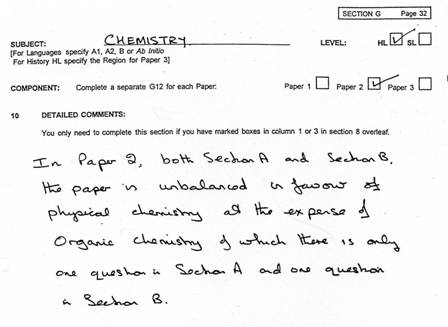 SECTION G Page 32
SUBJECT: CHEMISTRY. LEVEL: HL SL
[For Languages specify A1, A2, B or Ab Initio
For History HL specify the Region for Paper 3]
COMPONENT: Complete a separate G12 for each Paper. Paper 1 Paper 2 Paper 3
10 DETAILED COMMENTS:
You only need to complete this section if you have marked boxes in column 1 or 3 in section 8 overleaf.
In Paper 2, both Section A and Section B,
the paper is unbalanced in favour of
physical chemistry at the expense of
Organic chemistry of which there is only
one question in Section A and one question
in Section B.